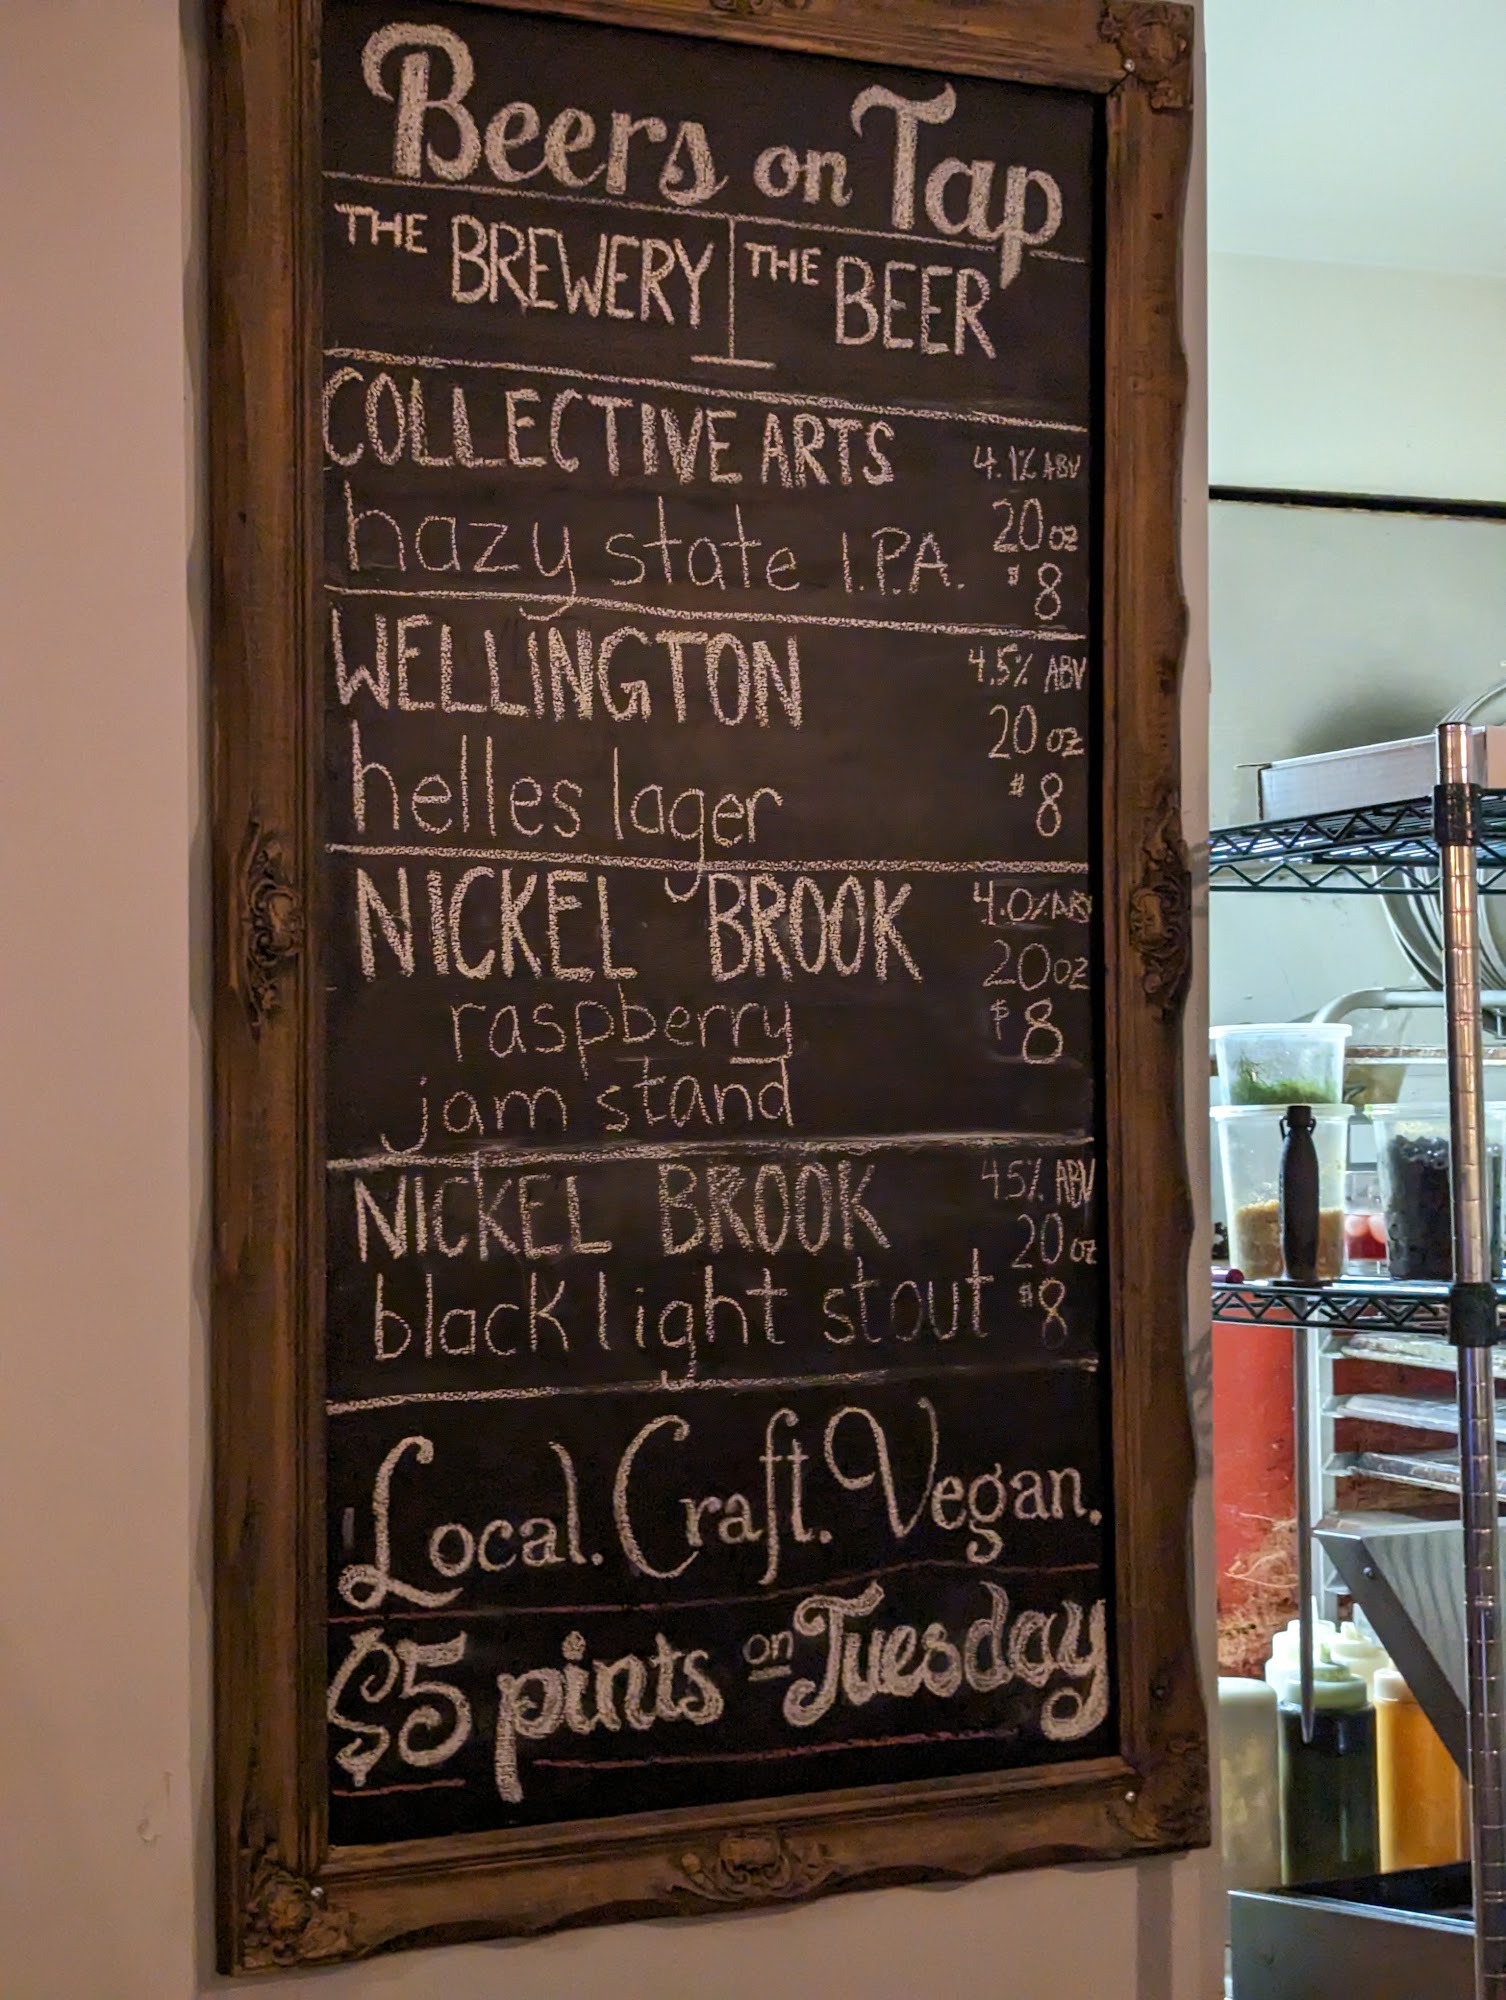 Beers on Tap
THE BREWERY THE BEER
COLLECTIVE ARTS 4.1% ABV
hazy state I.P.A. 20 oz
$8
WELLINGTON 4.5% ABV
20 oz
helles lager $8
NICKEL BROOK 4.0% ABV
20 oz
raspberry $8
jam stand
NICKEL BROOK 4.5% ABV
20 oz
black light stout $8
Local. Craft. Vegan.
$5 pints on Tuesday